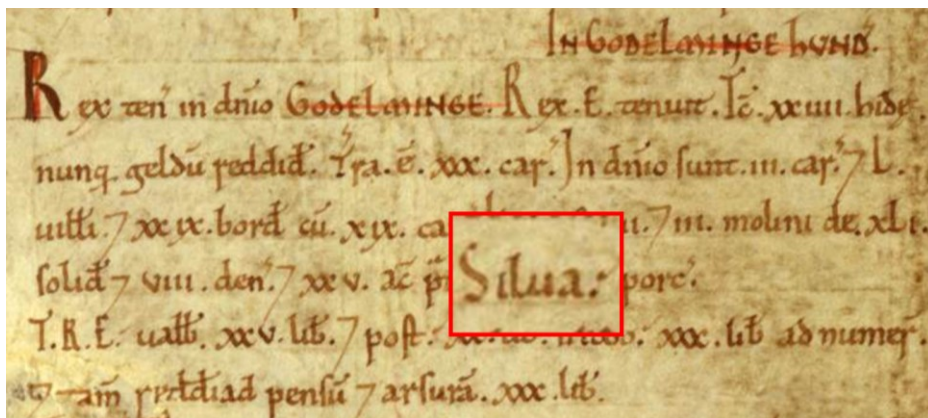 IN GODELMINGE HUND.
Rex ten in dnio GODELMINGE. Rex. E. tenuit. Tc. xxiiii. hide.
nunq geldu reddid. Tra. e. xxx. car. In dnio sunt. iii. car. ⁊ L.
uilli. ⁊ xxix. bord cu. xix. ca ii. ⁊ iii. molini de. xli.
solid ⁊ viii. den. ⁊ xxv. ac Silua. porc.
T.R.E. ualb. xxv. lib. ⁊ post. xxx. lib ad numer.
tam reddid ad pensu ⁊ arsura. xxx. lib.